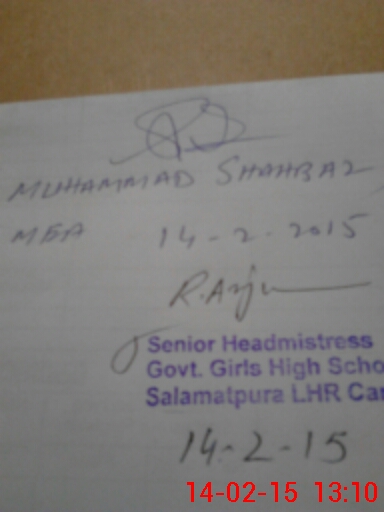 MUHAMMAD SHAHBAZ
MEA 14-2-2015
R. Anjum
Senior Headmistress
Govt. Girls High Scho
Salamatpura LHR Can
14-2-15
14-02-15 13:10